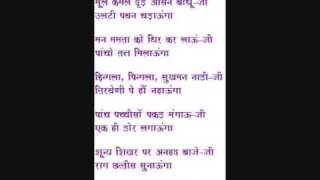 मूल कमल दृढ़ आसन बांधू-जी
उलटी पवन चढ़ाऊंगा
मन ममता को थिर कर लाऊं-जी
पांचो तत्त मिलाऊंगा
इंगला, पिंगला, सुखमन नाडी-जी
तिरवेणी पे हीं नहाऊंगा
पांच पच्चीसों पकड़ मंगाऊ-जी
एक ही डोर लगाऊंगा
शून्य शिखर पर अनहद बाजे-जी
राग छत्तीस सुनाऊंगा